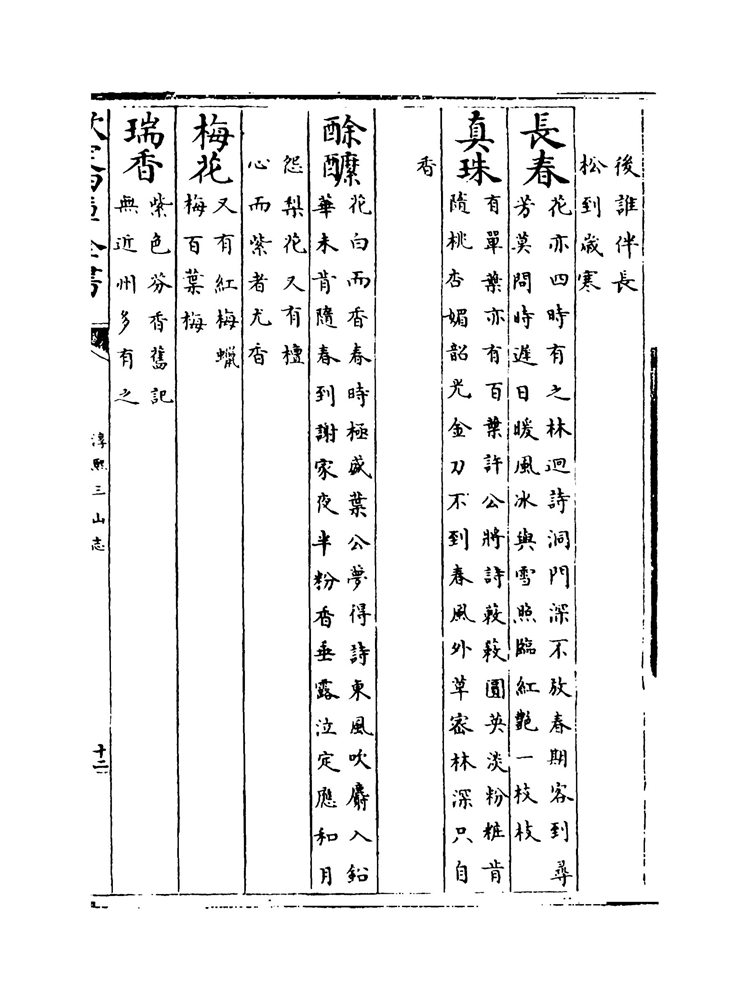 後誰伴長
松到歲寒
長春
花亦四時有之林迥詩洞門深不放春期容到尋
芳莫問時遲日暖風冰與雪照臨紅艷一枝枝
真珠
有單葉亦有百葉許公將詩蔌蔌圓英淡粉粧肯
隨桃杏媚韶光金刀不到春風外草宻林深只自
香
酴醾
花白而香春時極盛葉公夢得詩東風吹麝入鉛
華未肯隨春到謝家夜半粉香垂露泣定應和月
怨梨花又有檀
心而紫者尤香
梅花
又有紅梅蠟
梅百葉梅
瑞香
紫色芬香舊記
無近州多有之
欽定四庫全書
淳熙三山志
十二